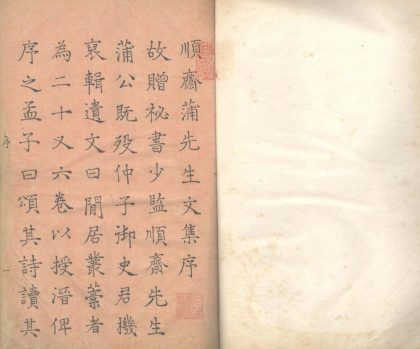 順齋蒲先生文集序
故贈祕書少監順齋先生
蒲公旣殁仲子御史君機
裒輯遺文曰閒居叢藁者
為二十又六卷以授溍俾
序之孟子曰頌其詩讀其
序
一